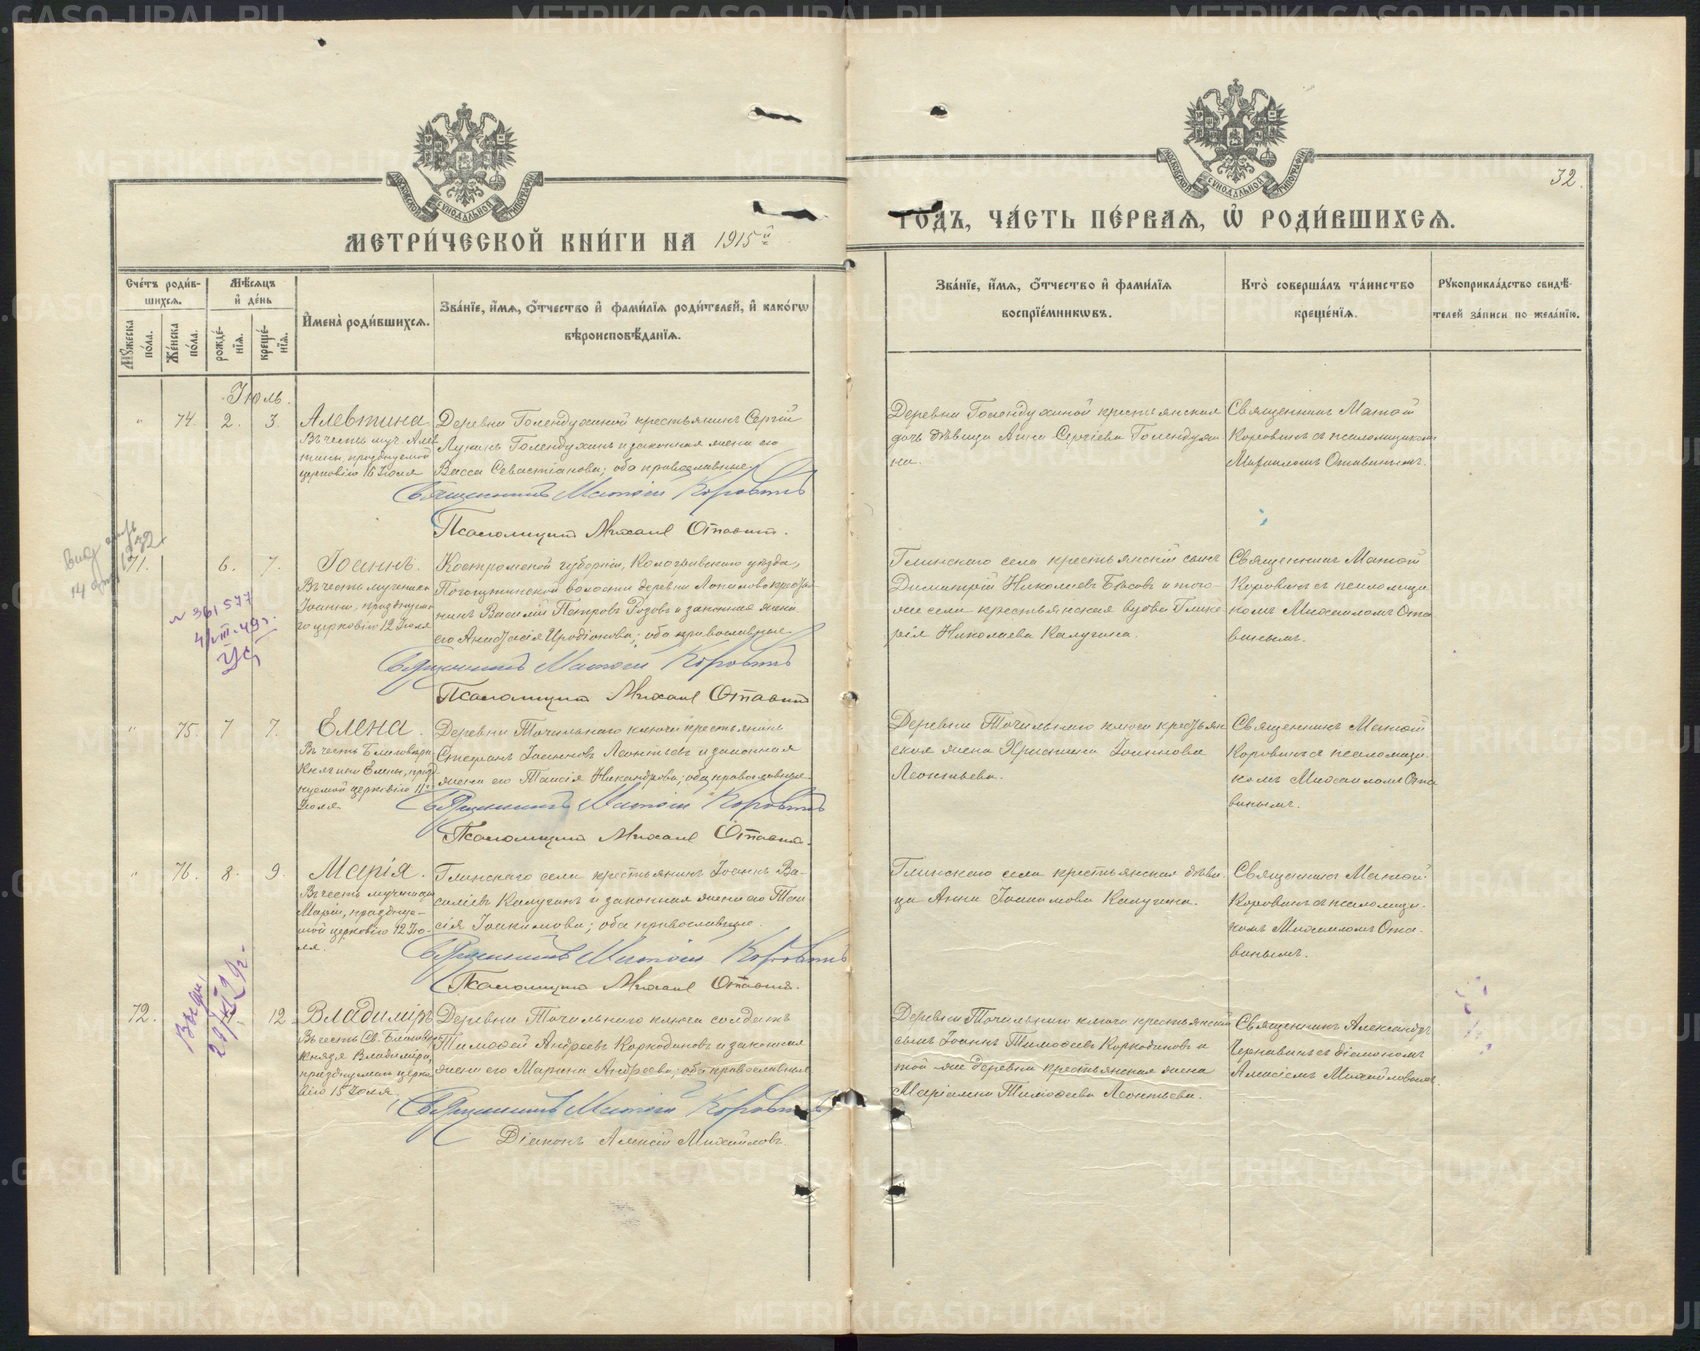 32.
МЕТРИЧЕСКОЙ КНИГИ НА 1915й
ГОДЪ, ЧАСТЬ ПЕРВАЯ, Ѿ РОДИВШИХСЯ.
Счетъ родившихся.
Мꙋжеска пола.
Женска пола.
Мѣсяцъ и день
рожденія.
крещенія.
Имена родившихся.
Званіе, имя, отчество и фамилія родителей, и какогѡ
вѣроисповѣданія.
Званіе, имя, отчество и фамилія
воспріемникѡвъ.
Кто совершалъ таинство
крещенія.
Рꙋкоприкладство свидѣ-
телей записи по желанію.
Іюль.
" 74. 2. 3.
Алевтина
Въ честь муч. Алев
тины, празднуемой
церковію 16 Іюля
Деревни Голендухиной крестьянинъ Сергій
Лукинъ Голендухинъ и законная жена его
Васса Севастіанова; оба православные.
Священникъ Матѳій Коровинъ
Псаломщикъ Михаилъ Отавинъ.
Деревни Голендухиной крестьянская
дочь дѣвица Анна Сергіева Голендухи
на.
Священникъ Матѳій
Коровинъ съ псаломщикомъ
Михаиломъ Отавинымъ.
71. 6. 7.
№ 361577
Іоаннъ.
Въ честь мученика
Іоанна, празднуема
го церковію 12 Іюля
Костромской губерніи, Кологривскаго уѣзда,
волости деревни крестья
нинъ Василій Петровъ Розовъ и законная жена
его Анастасія Иродіонова; оба православные.
Священникъ Матѳій Коровинъ
Псаломщикъ Михаилъ Отавинъ
Глинскаго села крестьянскій сынъ
Димитрій Николаевъ Бѣсовъ и того-
же села крестьянская вдова Глике
рія Николаева Калугина.
Священникъ Матѳій
Коровинъ съ псаломщи
комъ Михаиломъ Ота
винымъ.
" 75. 7 7.
Елена.
Въ честь Благовѣрн.
Княгини Елены, празд
нуемой церковію 11
Іюля.
Деревни Точильнаго ключа крестьянинъ
Стефанъ Іоанновъ Леонтьевъ и законная
жена его Таисія Никандрова; оба православные.
Священникъ Матѳій Коровинъ
Псаломщикъ Михаилъ Отавинъ.
Деревни Точильнаго ключа крестьян
ская жена Христина Іоаннова
Леонтьева.
Священникъ Матѳій
Коровинъ съ псаломщи
комъ Михаиломъ Ота
винымъ.
" 76. 8. 9.
Марія.
Въ честь мученицы
Маріи, празднуе-
мой церковію 12 Ію-
ля.
Глинскаго села крестьянинъ Іоаннъ Ва-
силіевъ Калугинъ и законная жена его Таи
сія Іоакимова; оба православные.
Священникъ Матѳій Коровинъ
Псаломщикъ Михаилъ Отавинъ.
Глинскаго села крестьянская дѣви
ца Анна Іоакимова Калугина.
Священникъ Матѳій
Коровинъ съ псаломщи.
комъ Михаиломъ Ота.
винымъ.
72. 12
Владиміръ
Въ честь Св. Благовѣр
князя Владиміра,
празднуемаго церко
вію 15 Іюля.
Деревни Точильнаго ключа солдатъ
Тимоѳей Андреевъ Коркодиновъ и законная
жена его Марина Андреева; оба православные
Священникъ Матѳій Коровинъ
Діаконъ Алексій Михайловъ.
Деревни Точильнаго ключа крестьянскій
сынъ Іоаннъ Тимоѳеевъ Коркодиновъ и
той-же деревни крестьянская жена
Маріамна Тимоѳеева Леонтьева.
Священникъ Александръ
Чернавинъ съ діакономъ
Алексіемъ Михайловымъ
METRIKI.GASO-URAL.RU